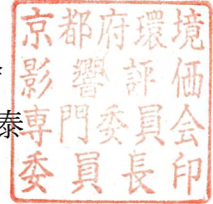 京都府環境
影響評価
専門委員会
委員長印
泰